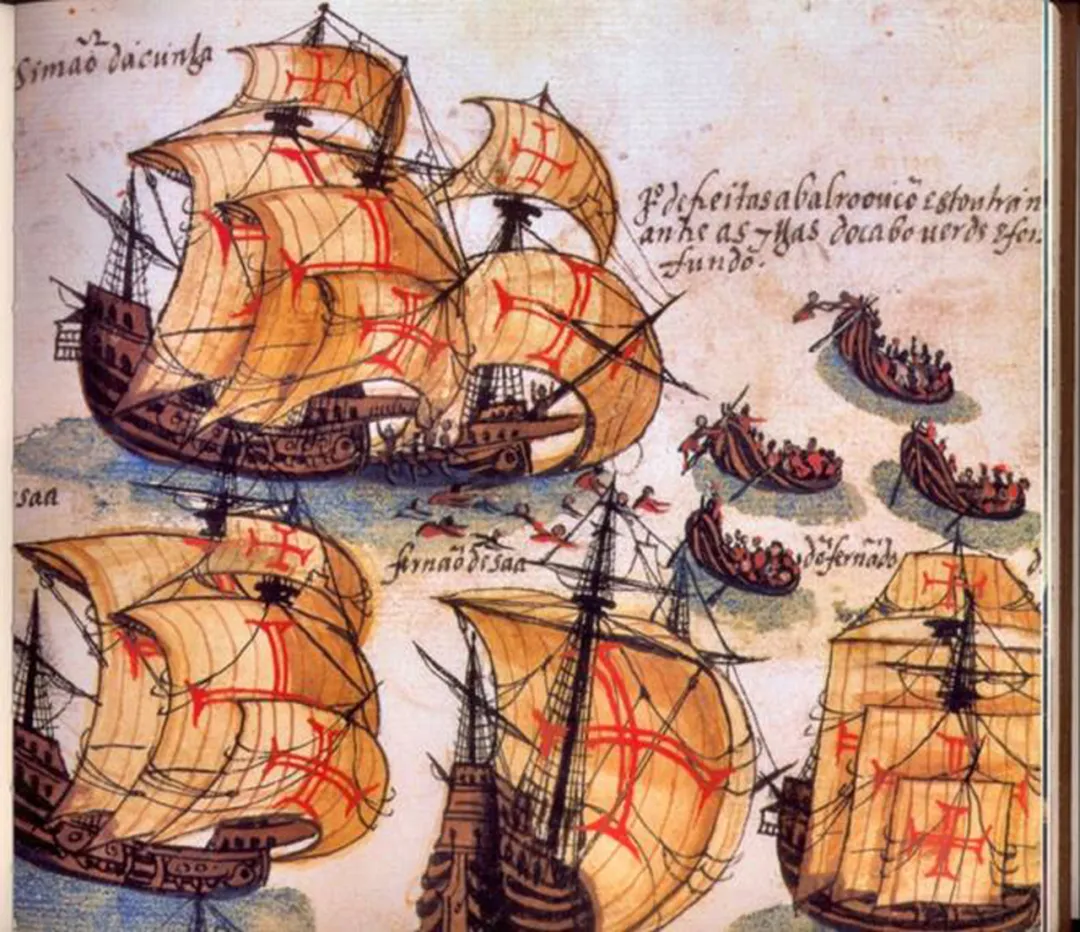 simaõ dacunha
P.º defreitas abalroou cõ estoutra n
antre as ylhas do cabo uerde & foi
fundo.
saa
fernaõ de saa
dõ fernãdo
d